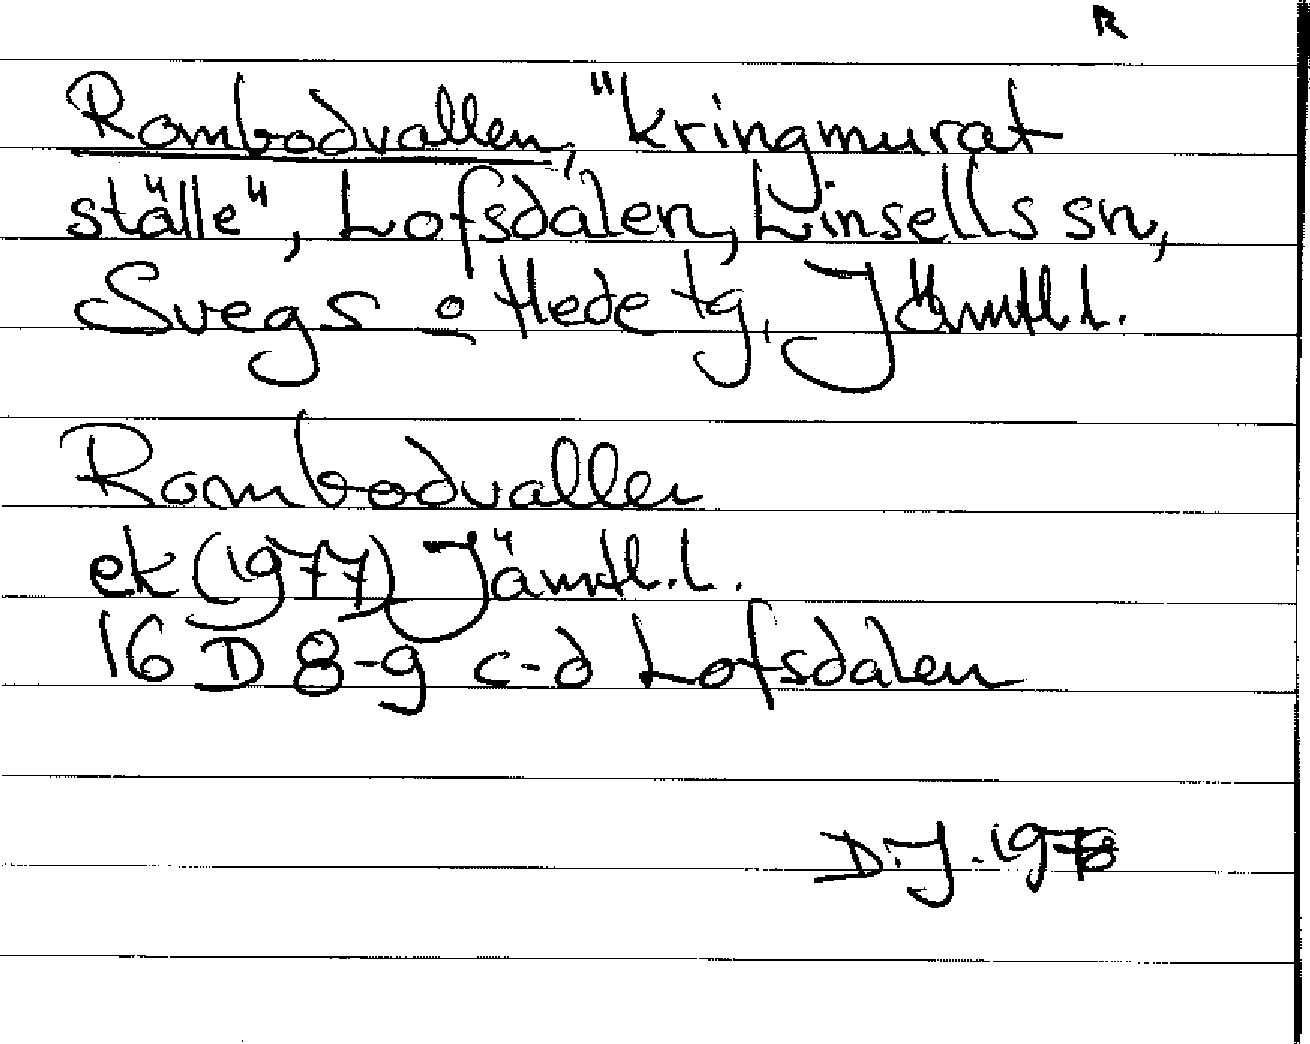 R
Rombodvallen, "kringmurat
ställe", Lofsdalen, Linsells sn,
Svegs o Hede tg, Jämtl. l.
Rombodvallen
ek (1977) Jämtl. l.
16 D 8-9 c-d Lofsdalen
D.J. 1978